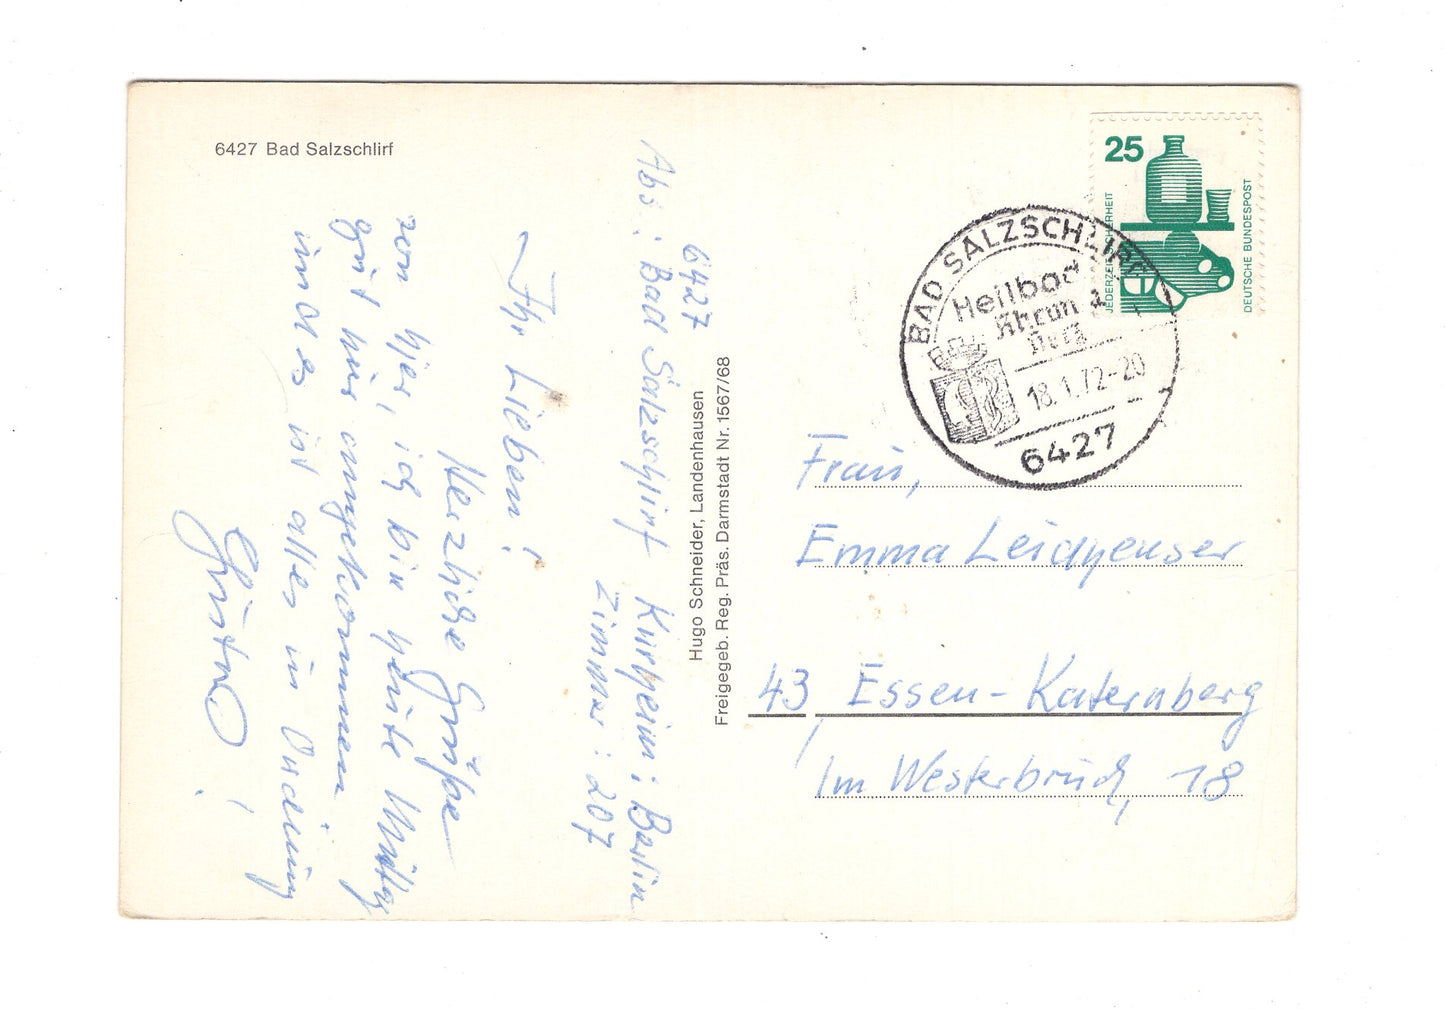 6427 Bad Salzschlirf
Abs.: Bad Salzschlirf Kurheim: Berlin
6427
Zimmer: 207
Ihr Lieben!
Herzliche Grüße
von hier, ich bin heute Mittag
gut hier angekommen
und es ist alles in Ordnung
!
Hugo Schneider, Landenhausen
Freigegeb. Reg. Präs. Darmstadt Nr. 1567/68
25
JEDERZEIT SICHERHEIT
DEUTSCHE BUNDESPOST
BAD SALZSCHLIRF
Heilbad
Rheuma
Herz
18.1.72-20
6427
Frau,
Emma Leichenuser
43 Essen-Katernberg
Im Westerbruch, 18